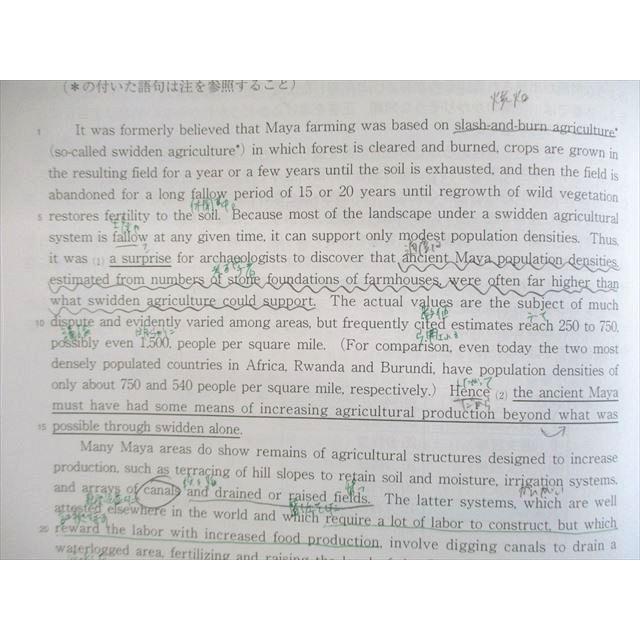 (*の付いた語句は注を参照すること)
1 It was formerly believed that Maya farming was based on slash-and-burn agriculture*
(so-called swidden agriculture*) in which forest is cleared and burned, crops are grown in
the resulting field for a year or a few years until the soil is exhausted, and then the field is
abandoned for a long fallow period of 15 or 20 years until regrowth of wild vegetation
5 restores fertility to the soil. Because most of the landscape under a swidden agricultural
system is fallow at any given time, it can support only modest population densities. Thus,
it was (1) a surprise for archaeologists to discover that ancient Maya population densities,
estimated from numbers of stone foundations of farmhouses, were often far higher than
what swidden agriculture could support. The actual values are the subject of much
10 dispute and evidently varied among areas, but frequently cited estimates reach 250 to 750,
possibly even 1,500, people per square mile. (For comparison, even today the two most
densely populated countries in Africa, Rwanda and Burundi, have population densities of
only about 750 and 540 people per square mile, respectively.) Hence (2) the ancient Maya
must have had some means of increasing agricultural production beyond what was
15 possible through swidden alone.
Many Maya areas do show remains of agricultural structures designed to increase
production, such as terracing of hill slopes to retain soil and moisture, irrigation systems,
and arrays of canals and drained or raised fields. The latter systems, which are well
attested elsewhere in the world and which require a lot of labor to construct, but which
20 reward the labor with increased food production, involve digging canals to drain a
waterlogged area, fertilizing and raising the